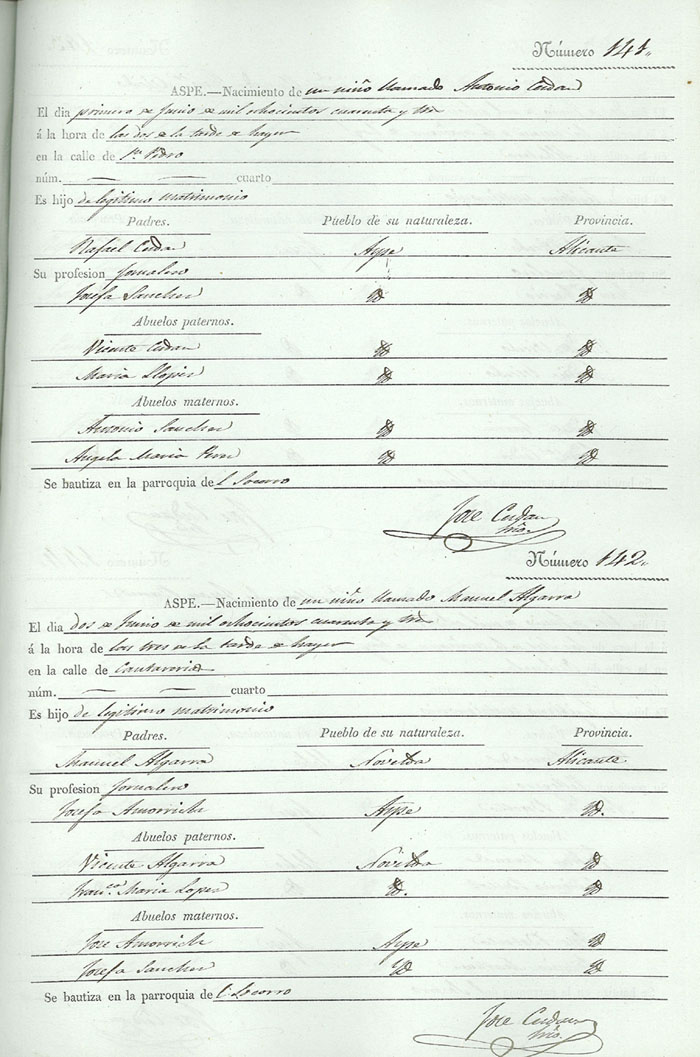 Número 141.
ASPE.—Nacimiento de un niño llamado Antonio Cerdan
El dia primero de Junio de mil ochocintos cuarenta y trs
á la hora de las dos de la tarde de hayer
en la calle de Sn. Pedro
núm. — — cuarto
Es hijo de legitimo matrimonio
Padres. Pueblo de su naturaleza. Provincia.
Rafael Cerdan Aspe Alicante
Su profesion Jornalero
Josefa Sanchez Yd Yd
Abuelos paternos.
Vicente Cerdan Yd Yd
Maria Llopis Yd Yd
Abuelos maternos.
Antonio Sanchez Yd Yd
Angela Maria Perez Yd Yd
Se bautiza en la parroquia de l Socorro
Jose Cerdan
Número 142.
ASPE.—Nacimiento de un niño llamado Manuel Algarra
El dia dos de Junio de mil ochocintos cuarenta y trs
á la hora de las tres de la tarde de hayer
en la calle de Cantareria
núm. — — cuarto
Es hijo de legitimo matrimonio
Padres. Pueblo de su naturaleza. Provincia.
Manuel Algarra Novelda Alicante
Su profesion Jornalero
Josefa Amorrich Aspe Yd.
Abuelos paternos.
Vicente Algarra Novelda Yd
Franca. Maria Lopez Yd. Yd
Abuelos maternos.
Jose Amorrich Aspe Yd
Josefa Sanchez Yd Yd
Se bautiza en la parroquia de l Socorro
Jose Cerdan